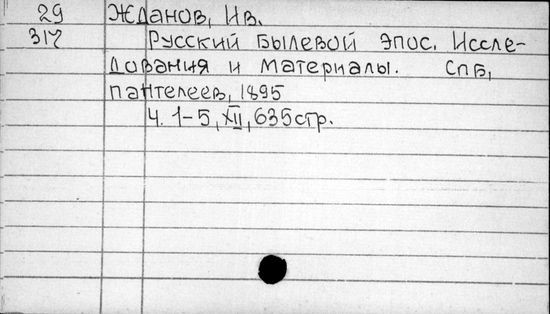 29 Жданов, Ив.
317 Русский былевой эпос. Иссле-
дования и материалы. СПБ,
Пантелеев, 1895
Ч. 1-5, XII, 635 стр.